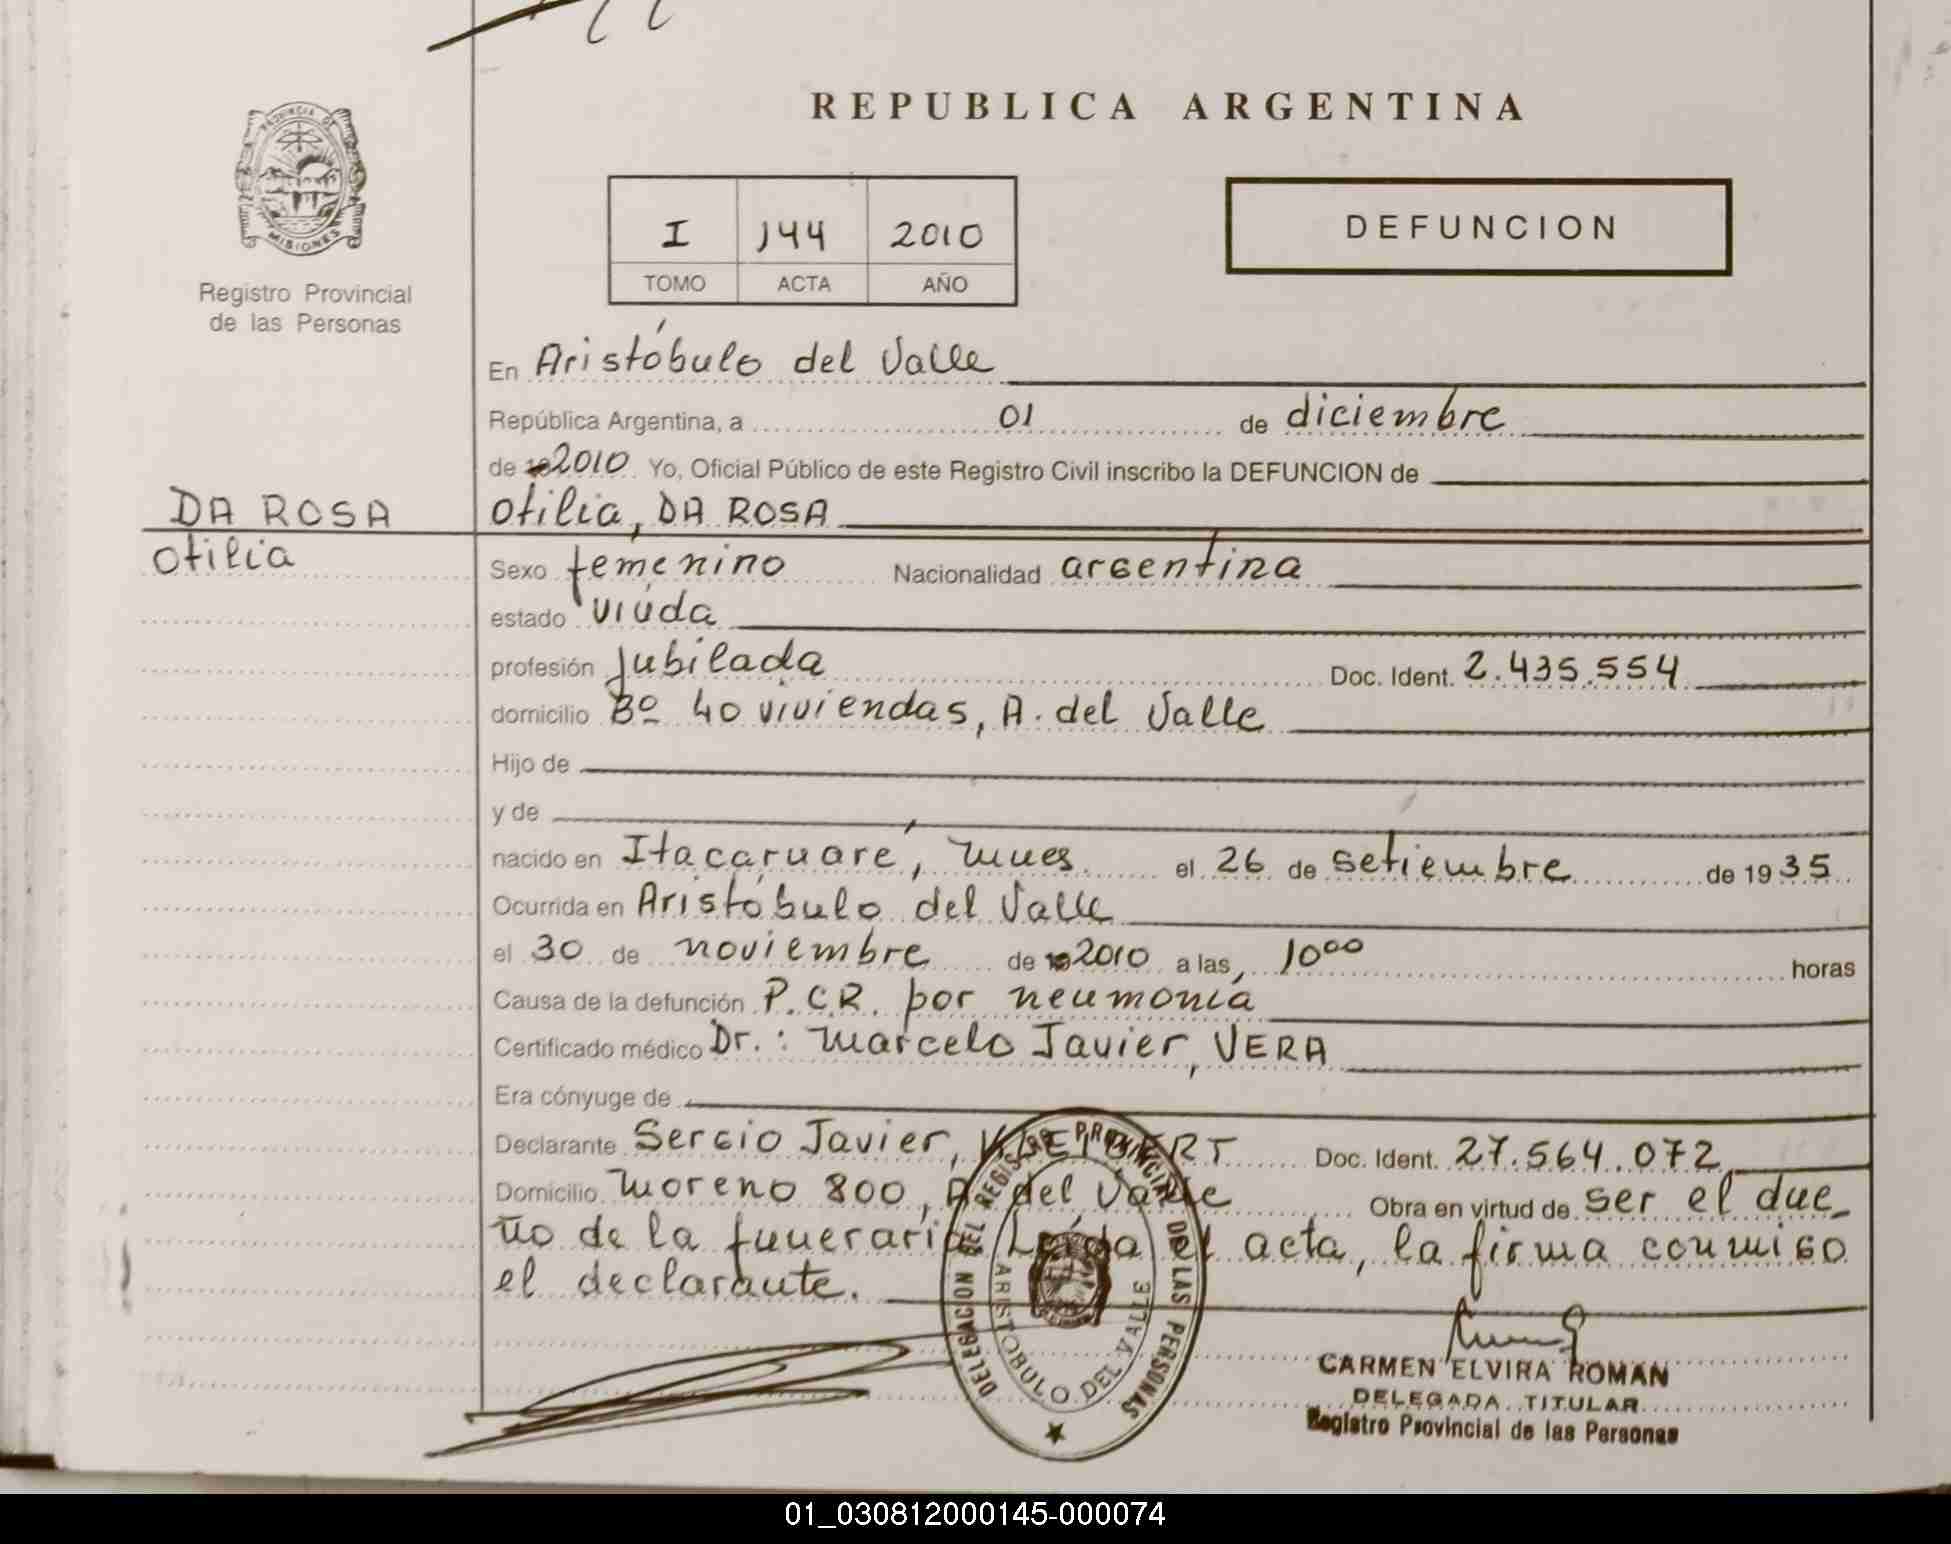 REPUBLICA ARGENTINA
PROVINCIA DE
MISIONES
Registro Provincial
de las Personas
I 144 2010
TOMO ACTA AÑO
DEFUNCION
En Aristóbulo del Valle
República Argentina, a 01 de diciembre
de 2010 Yo, Oficial Público de este Registro Civil inscribo la DEFUNCION de
DA ROSA
Otilia
Otilia, DA ROSA
Sexo femenino Nacionalidad argentina
estado viuda
profesión Jubilada Doc. Ident. 2.435.554
domicilio Bº 40 viviendas, A. del Valle
Hijo de
y de
nacido en Itacaruaré, Mnes el 26 de setiembre de 1935
Ocurrida en Aristóbulo del Valle
el 30 de noviembre de 2010 a las, 10⁰⁰ horas
Causa de la defunción P.C.R. por neumonía
Certificado médico Dr.: Marcelo Javier, VERA
Era cónyuge de
Declarante Sergio Javier, Doc. Ident. 27.564.072
Domicilio Moreno 800, A del Valle Obra en virtud de ser el due
ño de la funeraria Leída el acta, la firma conmigo
el declarante.
DELEGACION DEL REGISTRO PROVINCIAL DE LAS PERSONAS
ARISTOBULO DEL VALLE
CARMEN ELVIRA ROMAN
DELEGADA TITULAR
Registro Provincial de las Personas
01_030812000145-000074